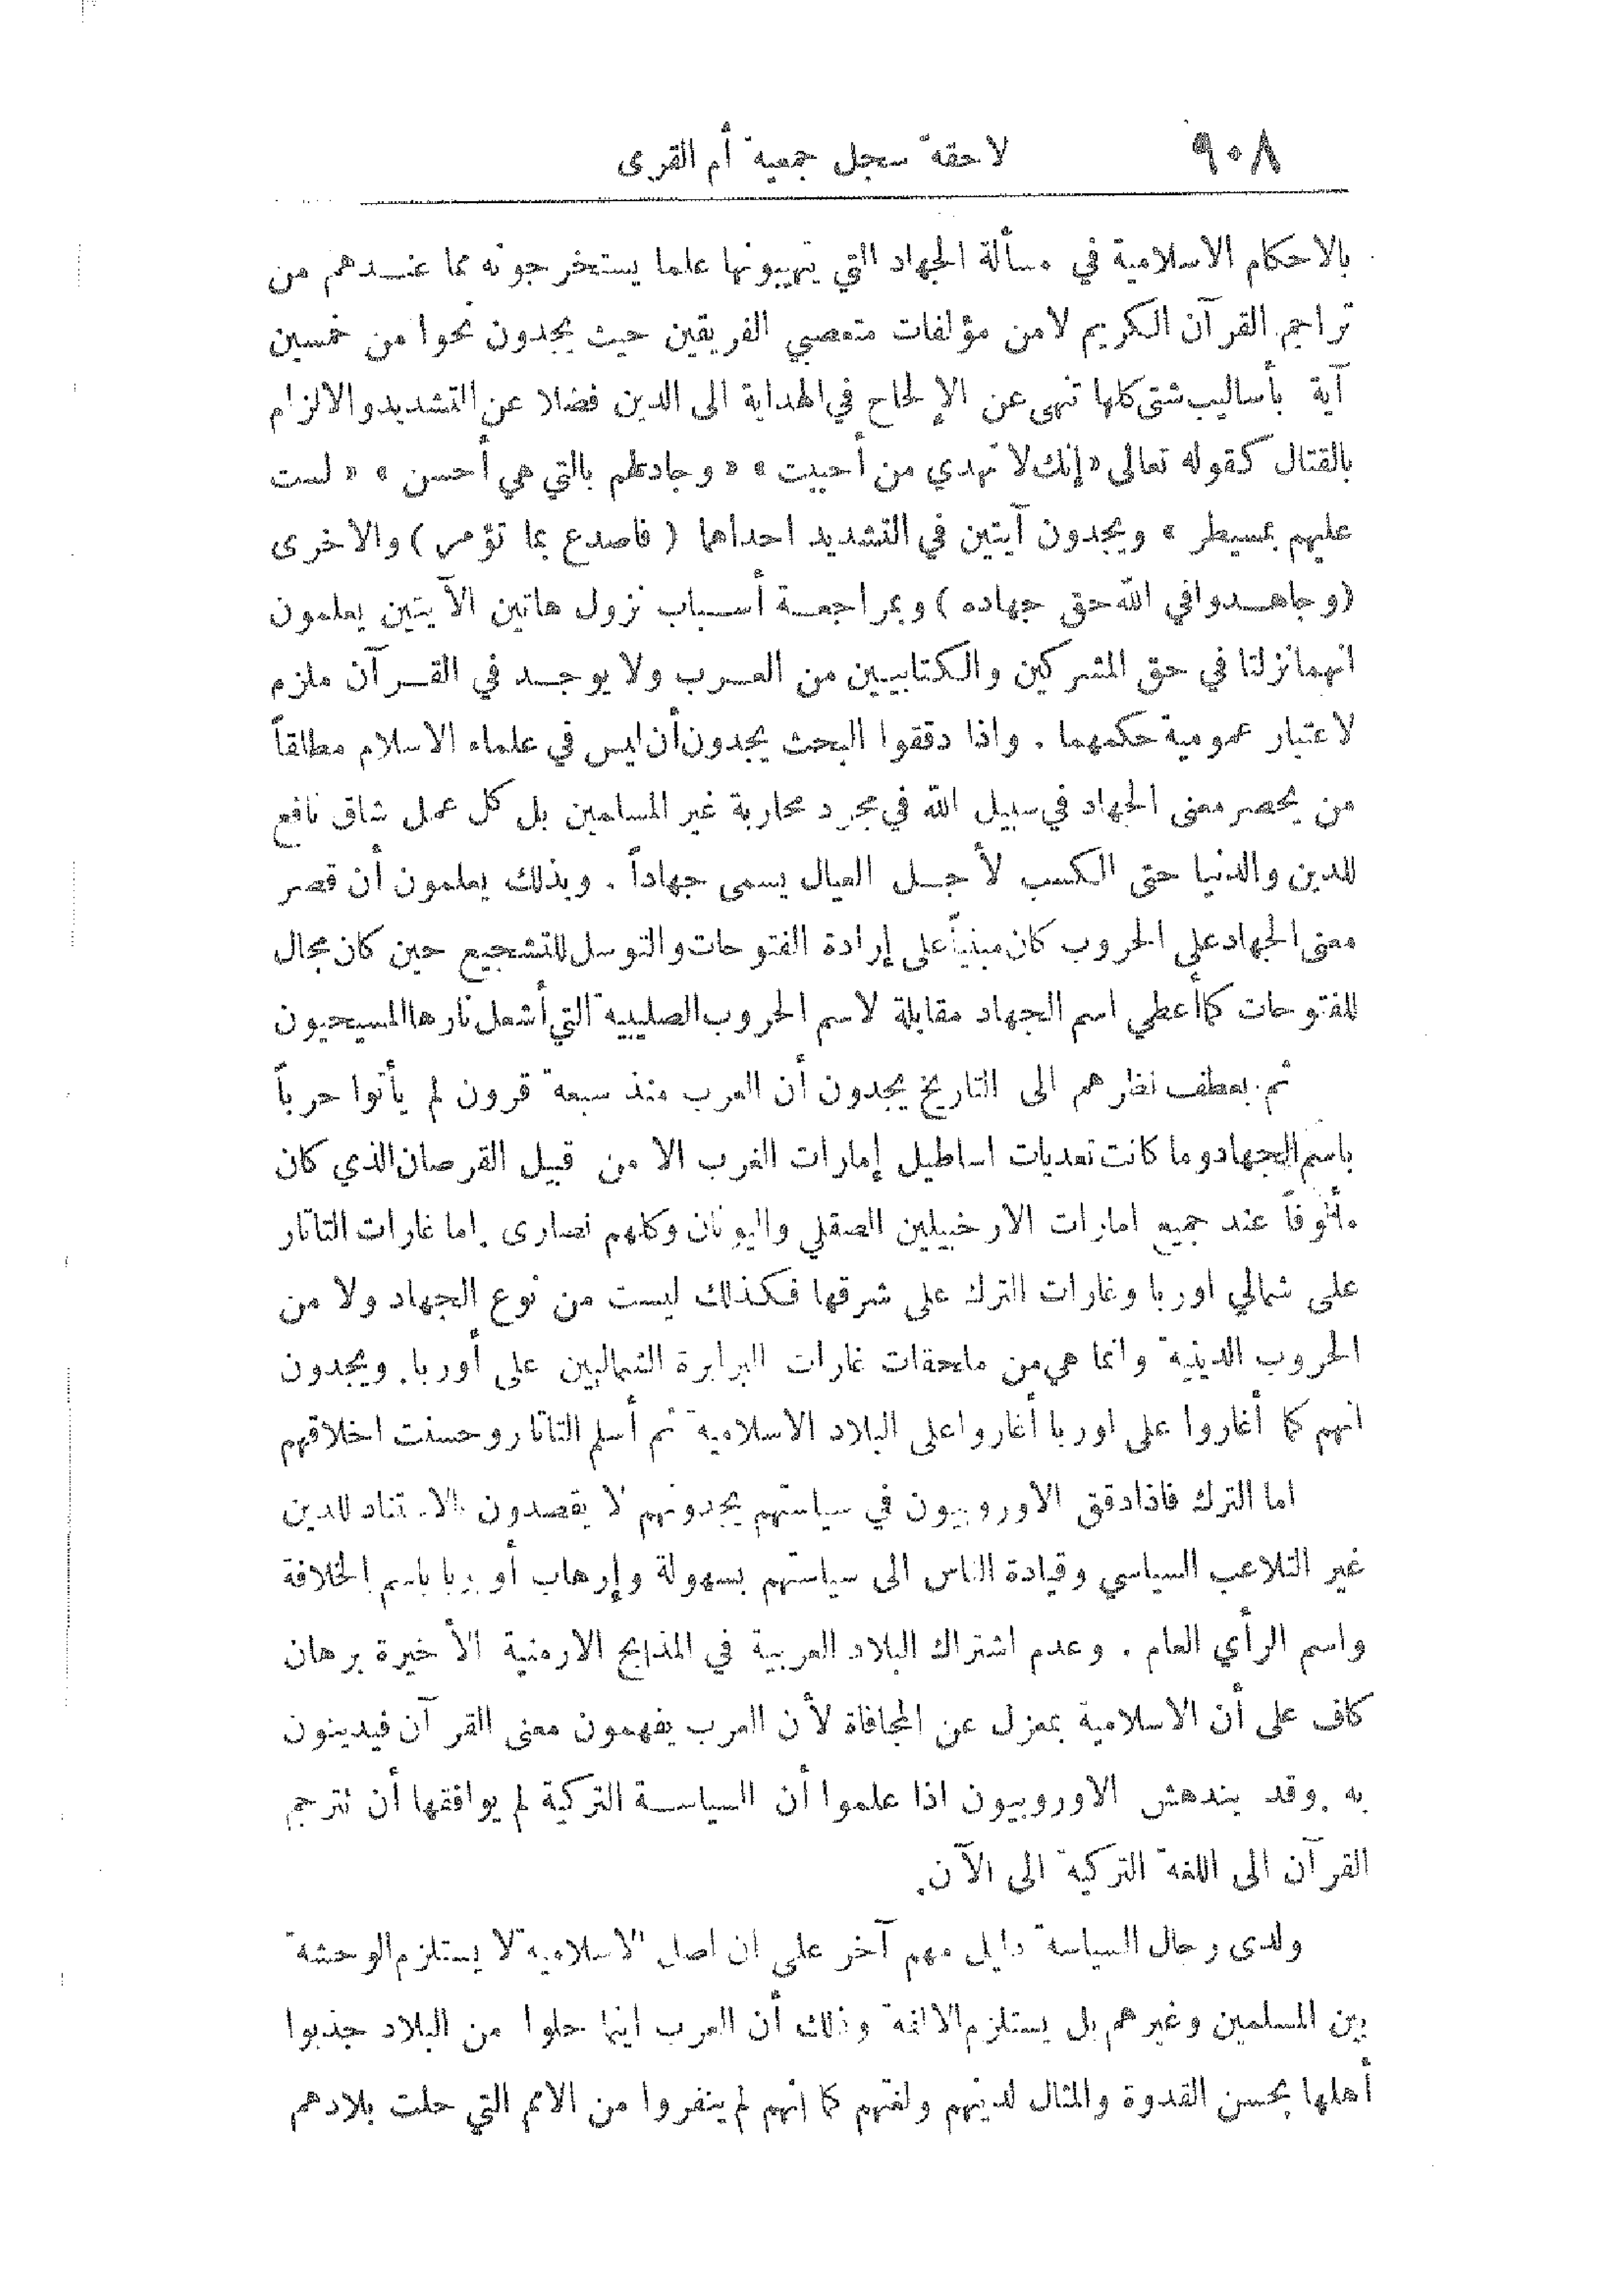 ٩٠٨ لاحقة سجل جمعية أم القرى
بالاحكام الاسلامية في مسألة الجهاد التي يتهيبونها علما يستخرجونه مما عندهم من
تراجم القرآن الكريم لامن مؤلفات متعصبي الفريقين حيث يجدون نحوا من خمسين
آية بأساليب شتى كلها تنهى عن الإلحاح في الهداية الى الدين فضلا عن التشديد والالزام
بالقتال كقوله تعالى «إنك لا تهدي من أحببت» «وجادلهم بالتي هي أحسن» «لست
عليهم بمسيطر» ويجدون آيتين في التشديد احداهما (فاصدع بما تؤمر) والاخرى
(وجاهدوا في الله حق جهاده) وبمراجعة أسباب نزول هاتين الآيتين يعلمون
انهما نزلتا في حق المشركين والكتابيين من العرب ولا يوجد في القرآن ملزم
لاعتبار عمومية حكمهما . واذا دققوا البحث يجدون أن ليس في علماء الاسلام مطلقاً
من يحصر معنى الجهاد في سبيل الله في مجرد محاربة غير المسلمين بل كل عمل شاق نافع
للدين والدنيا حتى الكسب لأجل العيال يسمى جهاداً . وبذلك يعلمون أن قصر
معنى الجهاد على الحروب كان مبنياً على إرادة الفتوحات والتوسل للتشجيع حين كان مجال
للفتوحات كما أعطي اسم الجهاد مقابلة لاسم الحروب الصليبية التي أشعل نارها المسيحيون
ثم بعطف نظرهم الى التاريخ يجدون أن العرب منذ سبعة قرون لم يأتوا حرباً
باسم الجهاد وما كانت تعديات اساطيل إمارات الغرب الا من قبيل القرصان الذي كان
مألوفاً عند جميع امارات الارخبيلين الصقلي واليونان وكلهم نصارى . اما غارات التاتار
على شمالي اوربا وغارات الترك على شرقها فكذلك ليست من نوع الجهاد ولا من
الحروب الدينية وانما هي من ملحقات غارات البرابرة الشماليين على أوربا . ويجدون
انهم كما أغاروا على اوربا أغاروا على البلاد الاسلامية ثم أسلم التاتار وحسنت اخلاقهم
اما الترك فاذا دقق الاوروبيون في سياستهم يجدونهم لا يقصدون بالاستناد للدين
غير التلاعب السياسي وقيادة الناس الى سياستهم بسهولة وإرهاب أوربا باسم الخلافة
واسم الرأي العام . وعدم اشتراك البلاد العربية في المذابح الارمنية الأخيرة برهان
كاف على أن الاسلامية بمعزل عن المجافاة لأن العرب يفهمون معنى القرآن فيدينون
به . وقد يندهش الاوروبيون اذا علموا أن السياسة التركية لم يوافقها أن تترجم
القرآن الى اللغة التركية الى الآن .
ولدى رجال السياسة دليل مهم آخر على ان اصل الاسلامية لا يستلزم الوحشة
بين المسلمين وغيرهم بل يستلزم الالفة وذلك أن العرب اينما حلوا من البلاد جذبوا
أهلها بحسن القدوة والمثال لدينهم ولغتهم كما انهم لم ينفروا من الامم التي حلت بلادهم